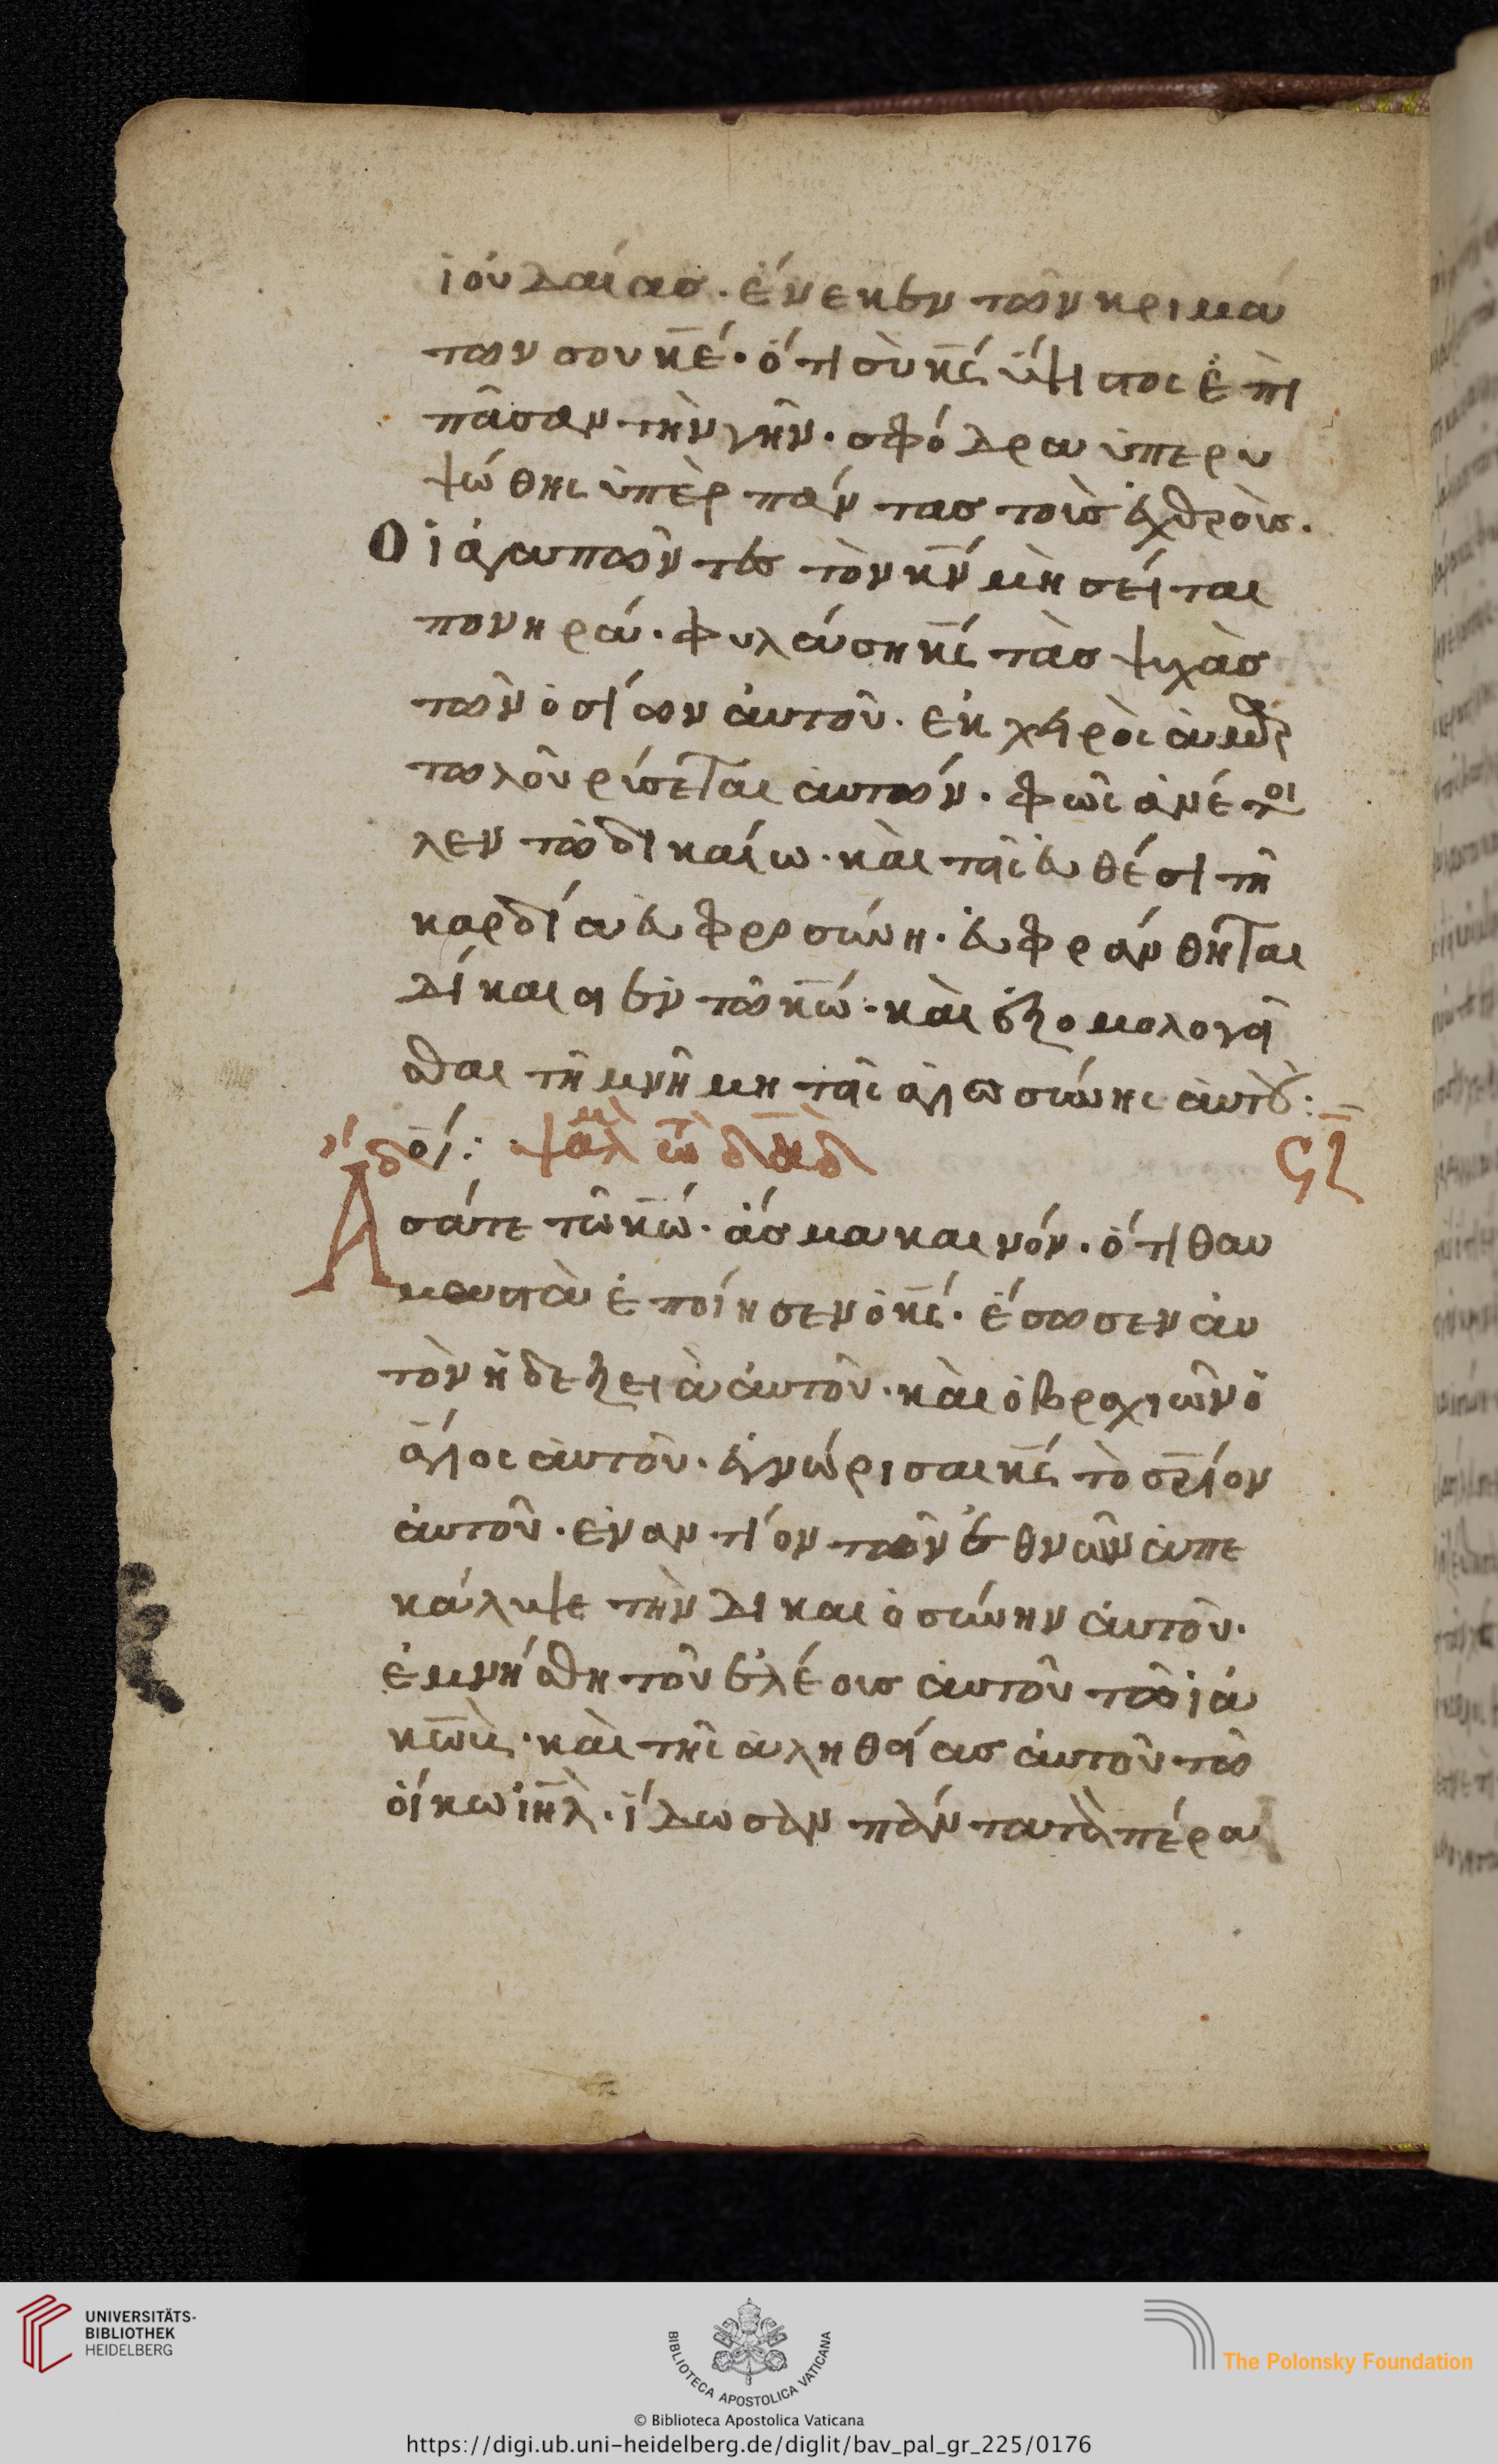 ἰούδαίασ. ἕνεκεν τῶν κριμά
των σου κ̅έ. ὅτι σὺ κ̅ς́ ὕψιστος ἐπὶ
πᾶσαν τὴν γῆν. σφόδρα ὑπερυ
ψώθης ὑπὲρ πάντασ τοὺσ ἐχθροὺσ.
Οἱ ἀγαπῶντεσ τὸν κ̅ν́ μὴσεῖται
πονηρά. φυλάσηκ̅ς́ τὰσ ψυχὰσ
τῶν ὁσίων ἀυτοῦ. ἐκ χειρὸς ἁμαρ
τωλοῦ ρύσεται ἀυτών. φῶς ἀνέτοι
λεν τῶ δικαίω. κὰι τοῖς ἐυθέσι τῆ
καρδία ἐυφροσύνη. ἐυφράνθηται
δίκαιοι ἐν τῶ κ̅ώ. κὰι ἐξομολογεῖ
σθαι τῆ μνήμη τῆς ἁγιωσύνης ἀυτοῦ:
ψαλμ τῶ δα̅δ ϟζ
Ἄσατε τῶ κ̅ώ. ἆσμα καινόν. ὅτι θαυ
μαστὰ ἐποίησεν ὁ κ̅ς́. ἔσωσεν ἀυ
τὸν ἡ δεξειὰ ἀυτοῦ. κὰι ὁ βραχιῶν ὁ
ἅγιος ἀυτοῦ. ἐγνώρισαι κ̅ς́ τὸ σ̅ρίον
ἀυτοῦ. ἐναντίον τῶν ἐθνῶν ἀπε
κάλυψε τὴν δικαιοσύνην ἀυτοῦ.
ἐμνήσθη τοῦ ἐλέουσ ἀυτοῦ τῶ ἰα
κ̅ὼβ. κὰι τῆς ἀληθείασ ἀυτοῦ τῶ
οἴκω ἰ̅η̅λ. ἴδωσαν πάντα τὰ πέρα
UNIVERSITÄTS-
BIBLIOTHEK
HEIDELBERG
BIBLIOTECA APOSTOLICA VATICANA
The Polonsky Foundation
© Biblioteca Apostolica Vaticana
https://digi.ub.uni-heidelberg.de/diglit/bav_pal_gr_225/0176